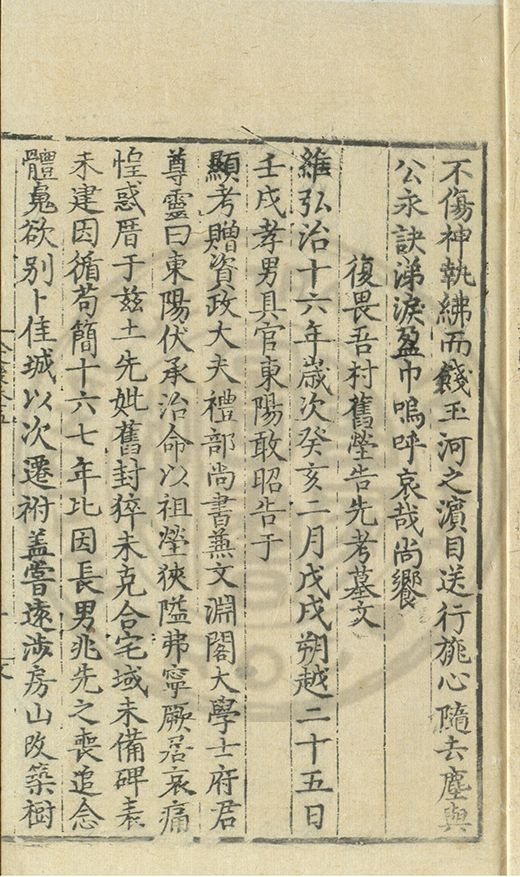 不傷神執紼而餞玉河之濵目送行旐心隨去塵與
公永訣涕淚盈巾嗚呼哀哉尚饗
復畏吾村舊塋告先考墓文
維弘治十六年歲次癸亥二月戊戌朔越二十五日
壬戌孝男具官東陽敢昭告于
顯考贈資政大夫禮部尚書兼文淵閣大學士府君
尊靈曰東陽伏承治命以祖塋狹隘弗寧厥居哀痛
惶惑厝于兹土先妣舊封猝未克合宅域未備碑表
未建因循苟簡十六七年比因長男兆先之喪追念
體䰟欲别卜佳城以次遷祔盖嘗遠涉房山改築樹